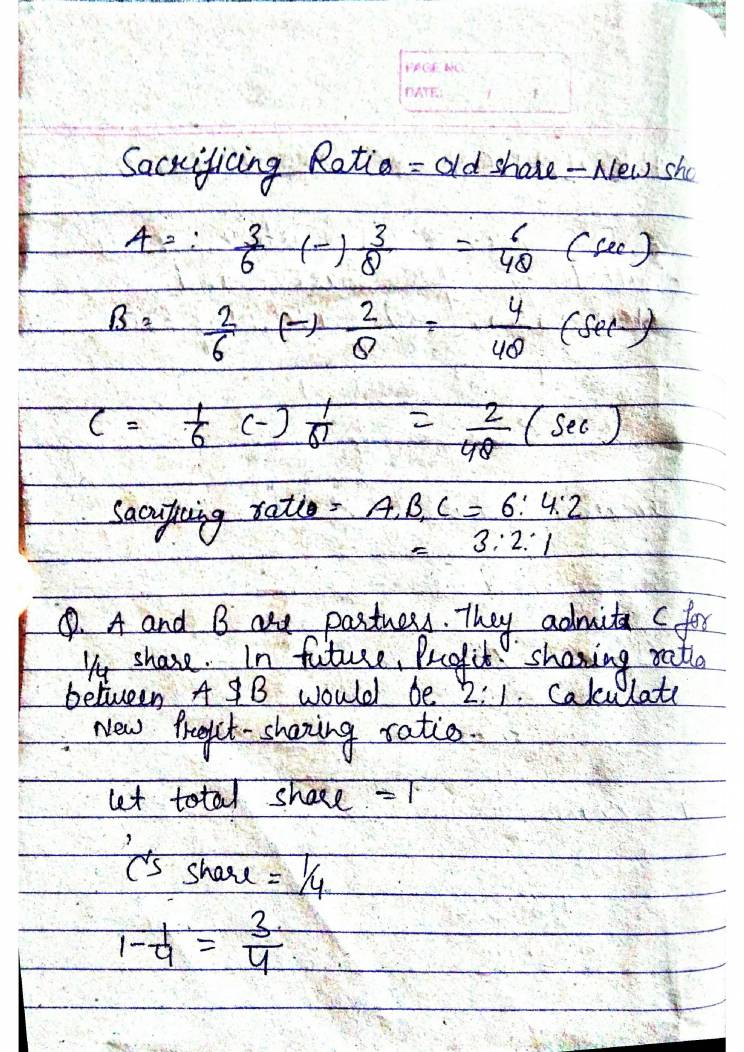 PAGE NO.
DATE: / /
Sacrificing Ratio = Old share - New sha
A = : 3/6 (-) 3/8 = 6/48 (Sec.)
B = 2/6 (-) 2/8 = 4/48 (Sec.)
C = 1/6 (-) 1/8 = 2/48 (Sec)
Sacrificing ratio = A, B, C = 6: 4:2
= 3:2:1
Q. A and B are partners. They admits C for
1/4 share. In future, Profit sharing ratio
between A & B would be 2:1. Calculate
New Profit-sharing ratio.
let total share = 1
C's share = 1/4
1 - 1/4 = 3/4